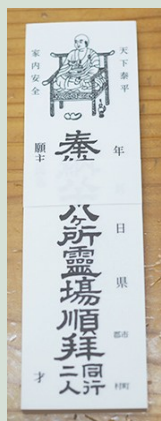 天下泰平
年 日 県 郡市 村町
奉
八ヶ所靈場順拝
同行
二人
家内安全
願主 才